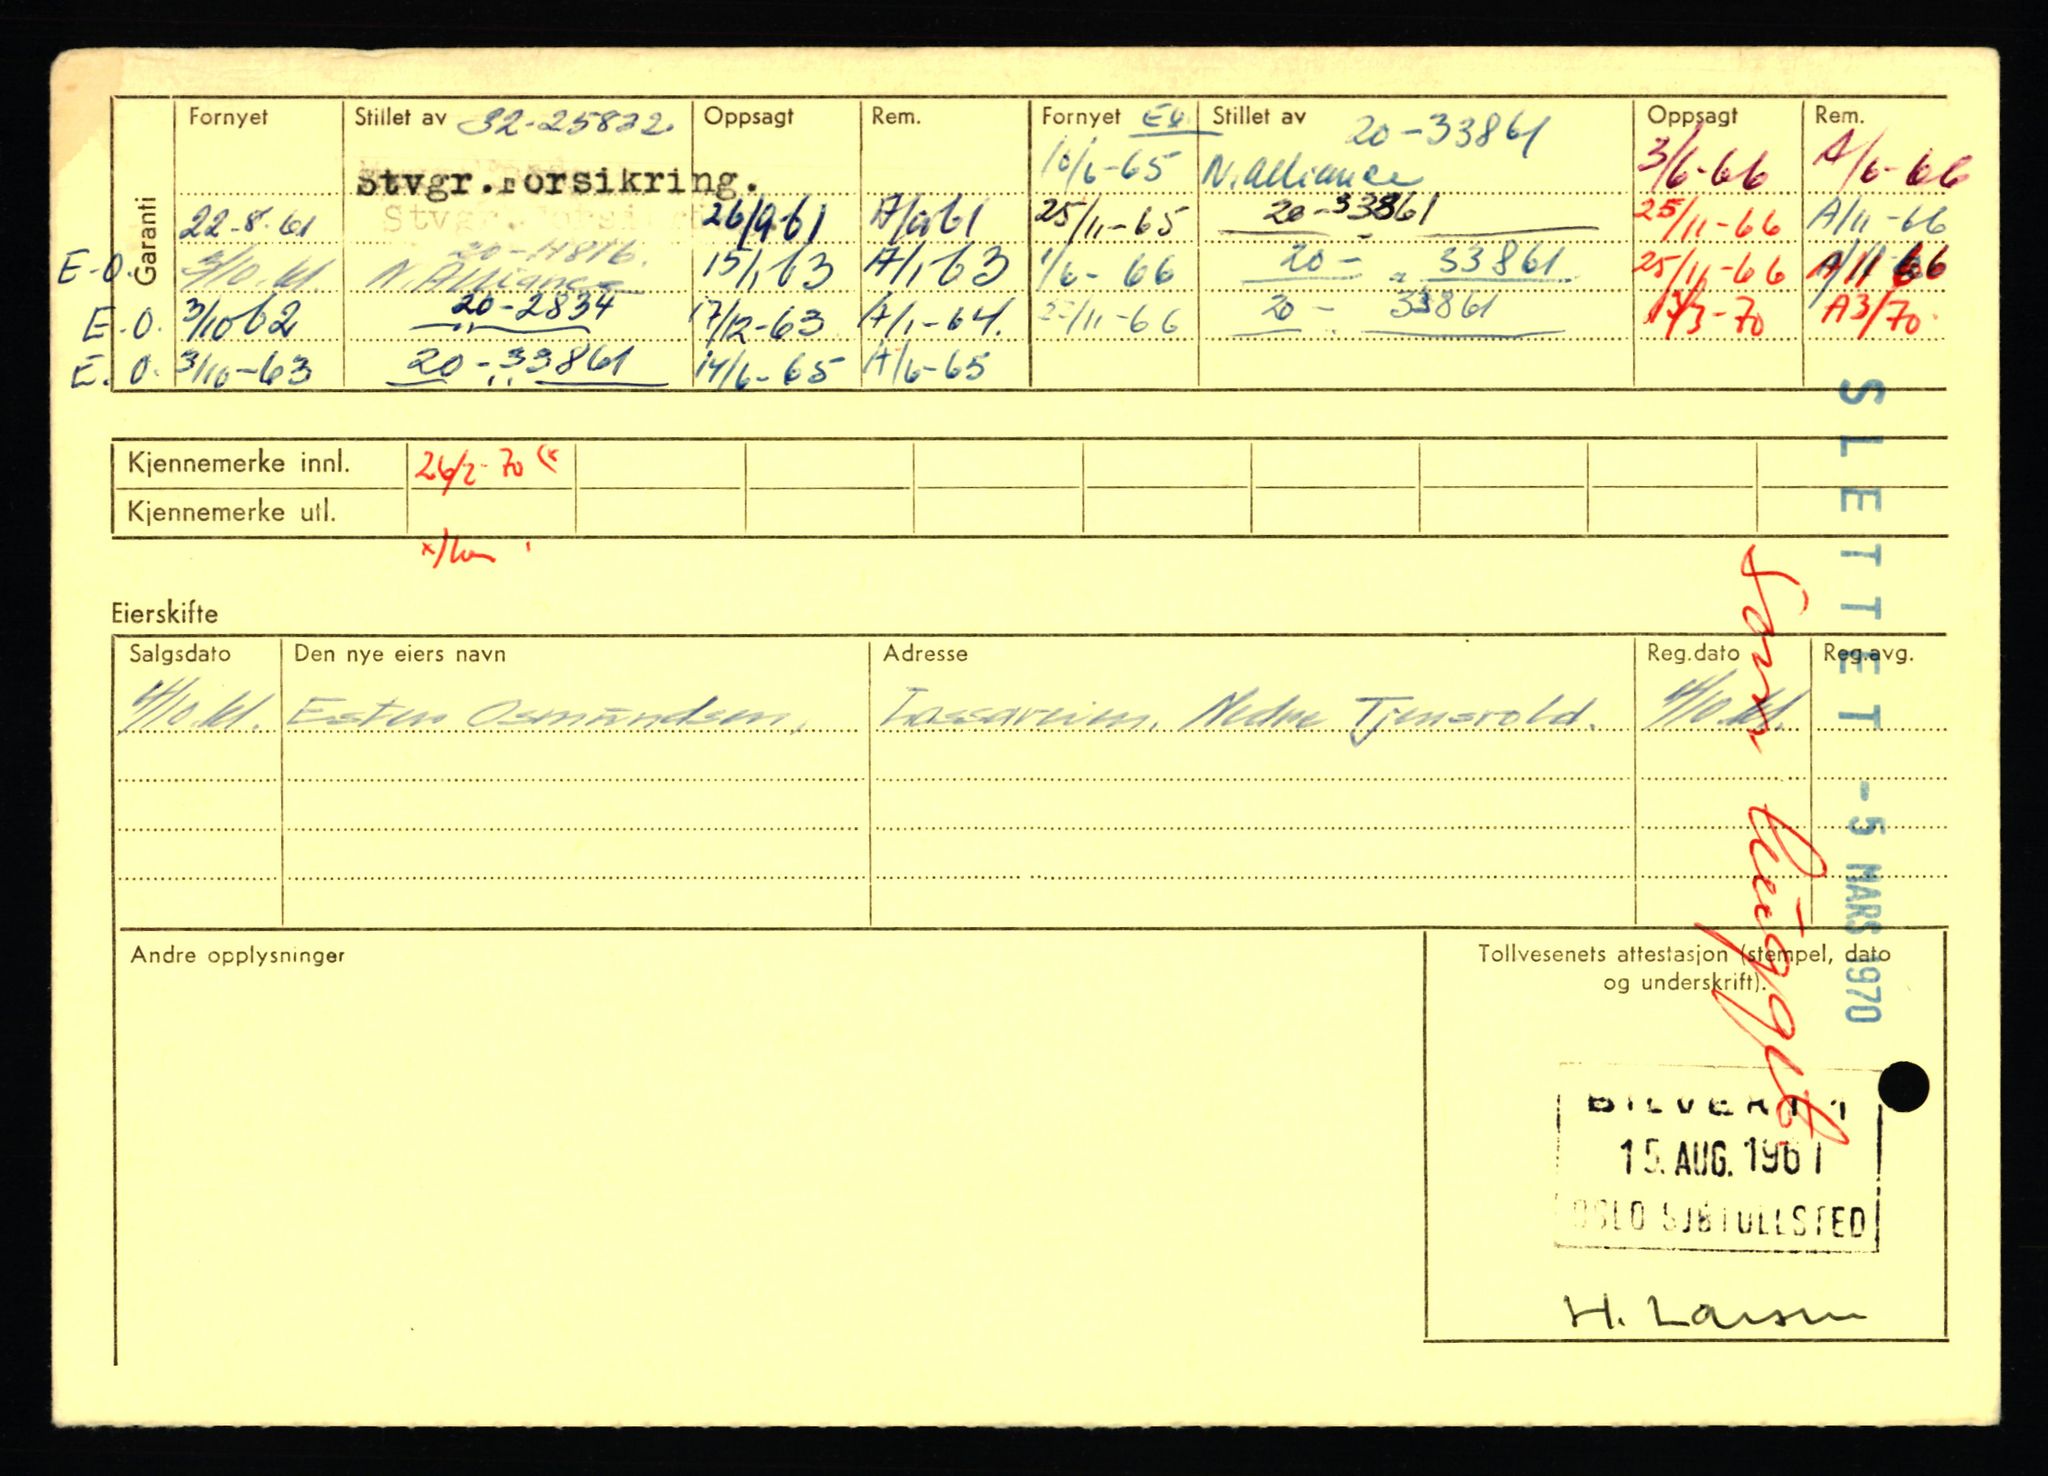 Garanti
Fornyet Stillet av 32-25832. Oppsagt Rem. Fornyet Stillet av 20-33861 Oppsagt Rem.
Stvgr.Forsikring. 10/6-65 N. Alliance 3/6-66 A/6-66
22-8-61 26/9-61 A/9 61 25/11-65 20-33861 25/11-66 A/11-66
E.O. 3/10.61. N. Alliance 15/1 63 A/1 63 1/6-66 20- " 33861 25/11-66 A/11 66
E.O. 3/10 62 20-2834 17/12-63 A/1-64. 25/11-66 20- 33861 13/3-70 A3/70
E.O. 3/10-63 20-33861 14/6-65 A/6-65
Kjennemerke innl. 26/2-70
Kjennemerke utl.
Eierskifte
Salgsdato Den nye eiers navn Adresse Reg.dato Reg.avg.
4/10.61. Osmundsen, Nedre 4/10.61.
Andre opplysninger
Tollvesenets attestasjon (stempel, dato
og underskrift).
SLETTET -5 MARS 1970
Som
15. AUG. 1961
OSLO
H. Larsen